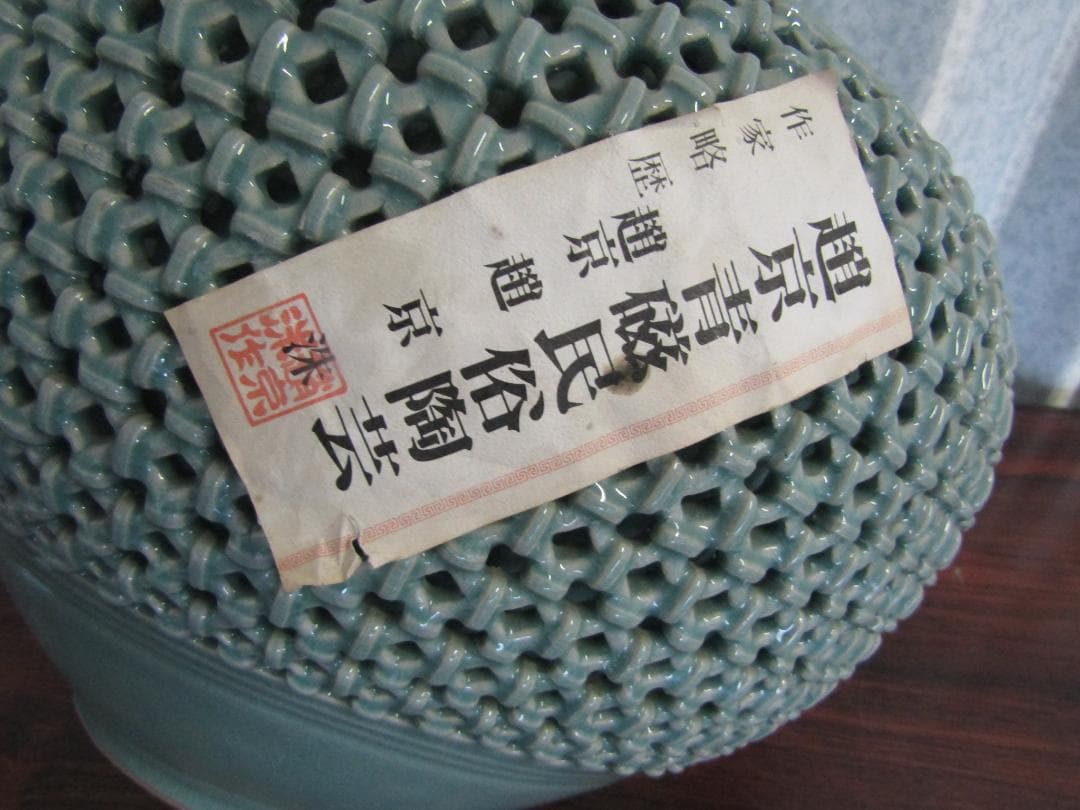 趙京青磁民俗陶芸
趙京 趙京洙
作家略歴